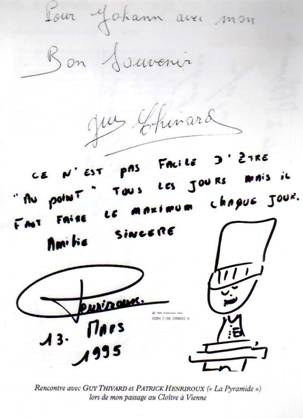 Pour Yohann avec mon
Bon Souvenir
Guy Thivard
CE N'EST PAS FACILE D'ÊTRE
"AU POINT" TOUS LES JOURS MAIS IL
FAUT FAIRE LE MAXIMUM CHAQUE JOUR.
AMITIE SINCERE
Henriroux
13. MARS
1995
Rencontre avec GUY THIVARD et PATRICK HENRIROUX (« La Pyramide »)
lors de mon passage au Cloître à Vienne